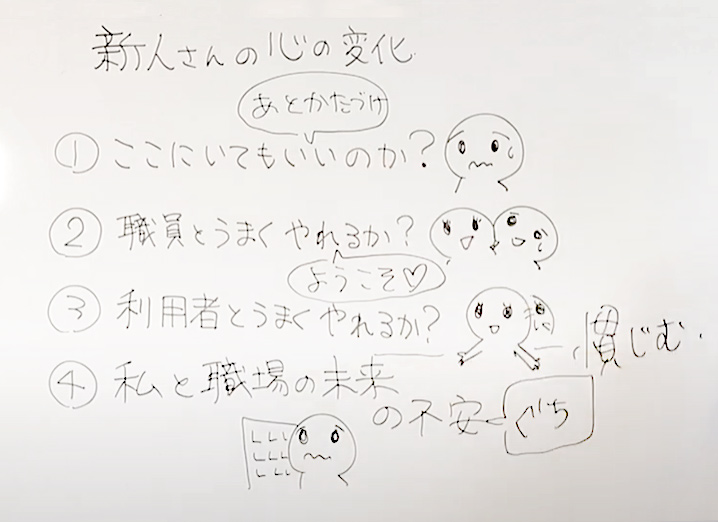 新人さんの心の変化
あとかたづけ
① ここにいてもいいのか?
② 職員とうまくやれるか?
ようこそ♡
③ 利用者とうまくやれるか?
慣じむ.
④ 私と職場の未来
の不安
ぐち